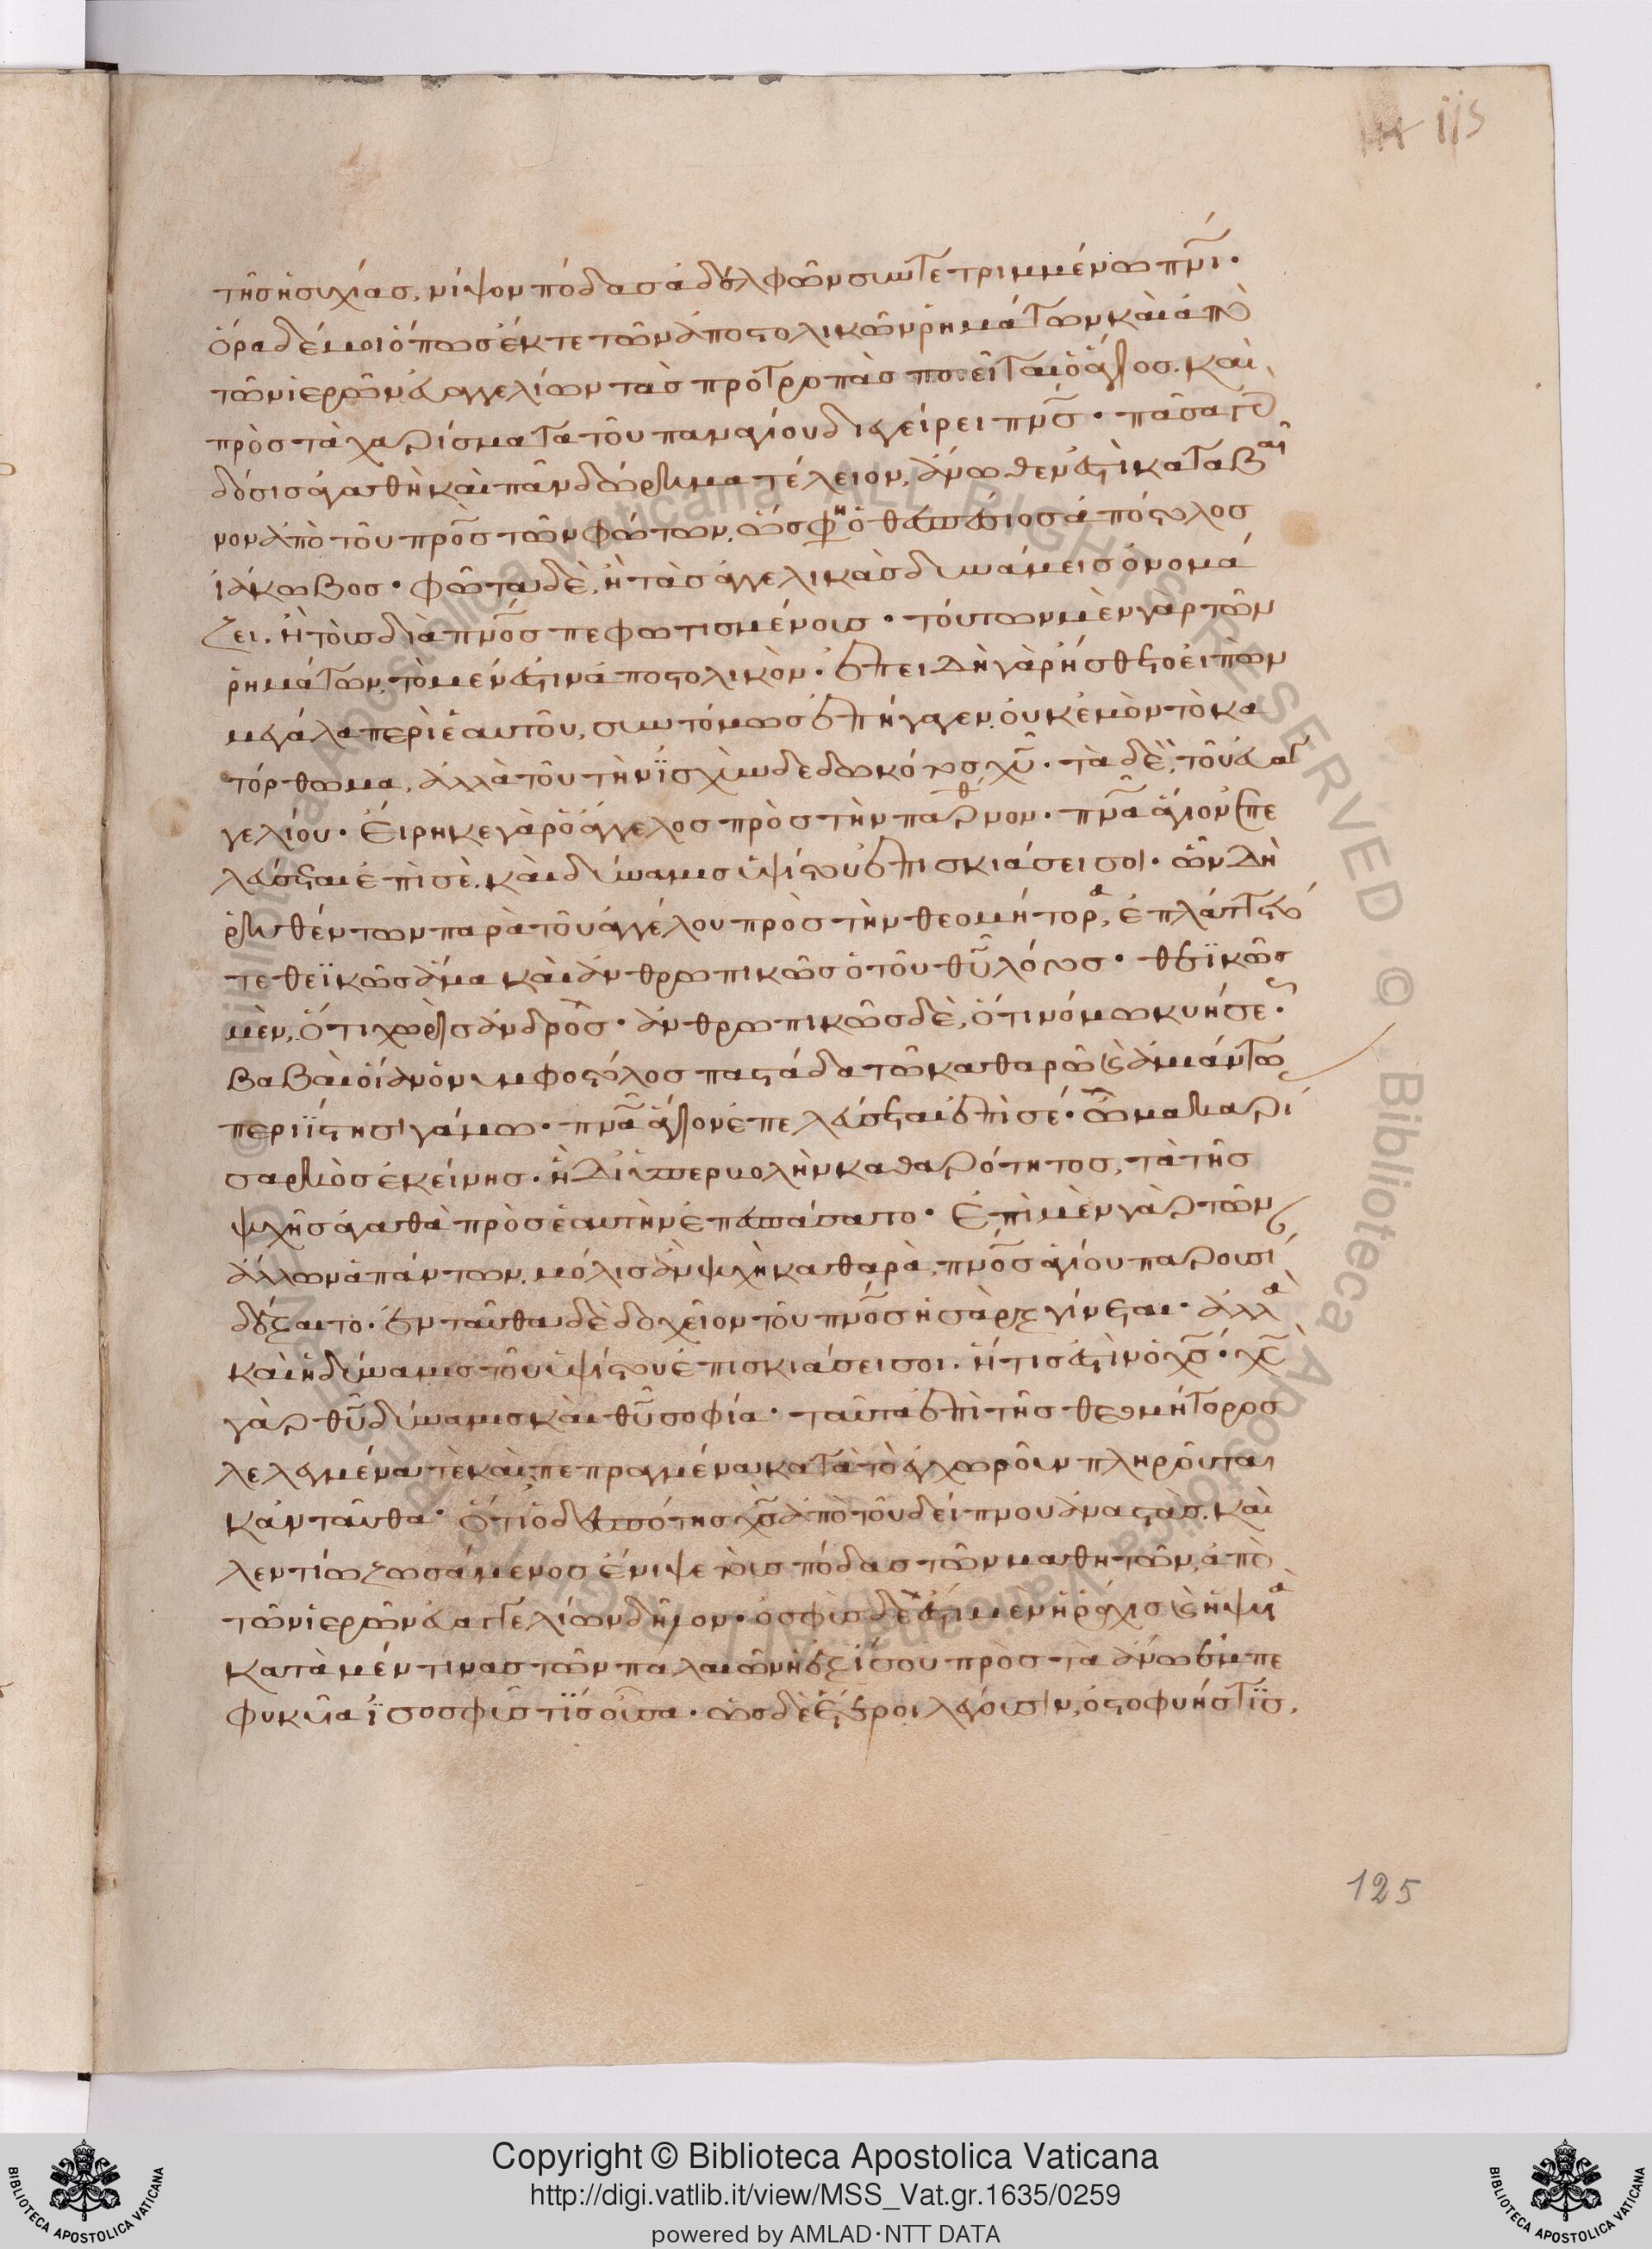 τῆς ἡσυχίας, νίψον πόδας ἀδελφῶν συντετριμμένω πνι·
ὅρα δέ μοι ὅπως ἔκ τε τῶν ἀποστολικῶν ρημάτων καὶ ἀπὸ
τῶν ἱερῶν εὐαγγελίων τὰς προτροπὰς ποιεῖται ὁ ἅγιος. καὶ
πρὸς τὰ χαρίσματα τοῦ παναγίου διεγείρει πνς· πᾶσα γὰρ
δόσις ἀγαθὴ καὶ πᾶν δώρημα τέλειον, ἄνωθεν ἐστὶ καταβαῖ
νον ἀπὸ τοῦ προς τῶν φώτων, ὥς φη ὁ θεσπέσιος ἀπόστολος
ἰάκωβος· φῶτα δὲ, ἢ τὰς ἀγγελικὰς δυνάμεις ὀνομά
ζει, ἢ τοῖς διὰ πνος πεφωτισμένοις· τούτων μὲν γὰρ τῶν
ρημάτων, τὸ μέν ἐστιν ἀποστολικόν· ἐπειδὴ γὰρ ἤσθετο εἰπὼν
μεγάλα περὶ ἑαυτοῦ, συντόμως ἐπήγαγεν, οὐκ ἐμὸν τὸ κα
τόρθωμα, ἀλλὰ τοῦ τὴν ἰσχὺν δεδωκότος χυ· τὰ δὲ, τοῦ εὐαγ
γελίου· Εἴρηκε γὰρ ὁ ἄγγελος πρὸς τὴν παρθνον· πνα ἅγιον ἐπε
λεύσεται ἐπὶ σὲ, καὶ δύναμις ὑψίστου ἐπισκιάσει σοι· ὧν δὴ
ρηθέντων παρὰ τοῦ ἀγγέλου πρὸς τὴν θεομήτορα, ἐπλάττετό
τε θεϊκῶς ἅμα καὶ ἀνθρωπικῶς ὁ τοῦ θυ λόγος· θεϊκῶς
μὲν, ὅτι χωρὶς ἀνδρός· ἀνθρωπικῶς δὲ, ὅτι νόμω κυήσεως·
βαβαὶ οἵαν ὁ νυμφοστόλος παστάδα τῶ καθαρῶ καὶ ἀμιάντω
περιΐστησι γάμω· πνα ἅγιον ἐπελεύσεται ἐπὶ σέ· ὢ μακαρί
σαρκὸς ἐκείνης· ἣ δι' ὑπερβολὴν καθαρότητος, τὰ τῆς
ψυχῆς ἀγαθὰ πρὸς ἑαυτὴν ἐπεσπάσατο· Ἐπὶ μὲν γὰρ τῶν
ἄλλων ἁπάντων, μόλις ἂν ψυχὴ καθαρὰ, πνος ἁγίου παρουσί
δέξαιτο· ἐνταῦθα δὲ δοχεῖον τοῦ πνος ἡ σὰρξ γίνεται· ἀλλὰ
καὶ ἡ δύναμις τοῦ ὑψίστου ἐπισκιάσει σοι. ἥτις ἐστὶν ὁ χς· χς
γὰρ θυ δύναμις καὶ θυ σοφία· ταῦτα ἐπὶ τῆς θεομήτορος
λελεγμένα τὲ καὶ πεπραγμένα, κατὰ τὸ ἐγχωροῦν πληροῦται
κἀνταῦθα· ὅτι ὁ δεσπότης χς ἀπὸ τοῦ δείπνου ἀναστὰς, καὶ
λεντίω ζωσάμενος ἔνιψε τοὺς πόδας τῶν μαθητῶν, ἀπὸ
τῶν ἱερῶν εὐαγγελίων δῆλον· ὀσφὺς δὲ ἐστι μὲν ἡ ράχις καὶ ἡ ψύα
κατὰ μέν τινας τῶν παλαιῶν ἡ ἐξ ἴσου πρὸς τὰ ἄνω ἐμπε
φυκυῖα ἰσοσφύς τις οὖσα· ὡς δὲ ἕτεροι λέγουσιν, ὀστοφυής τις,
125
Copyright © Biblioteca Apostolica Vaticana
http://digi.vatlib.it/view/MSS_Vat.gr.1635/0259
powered by AMLAD·NTT DATA